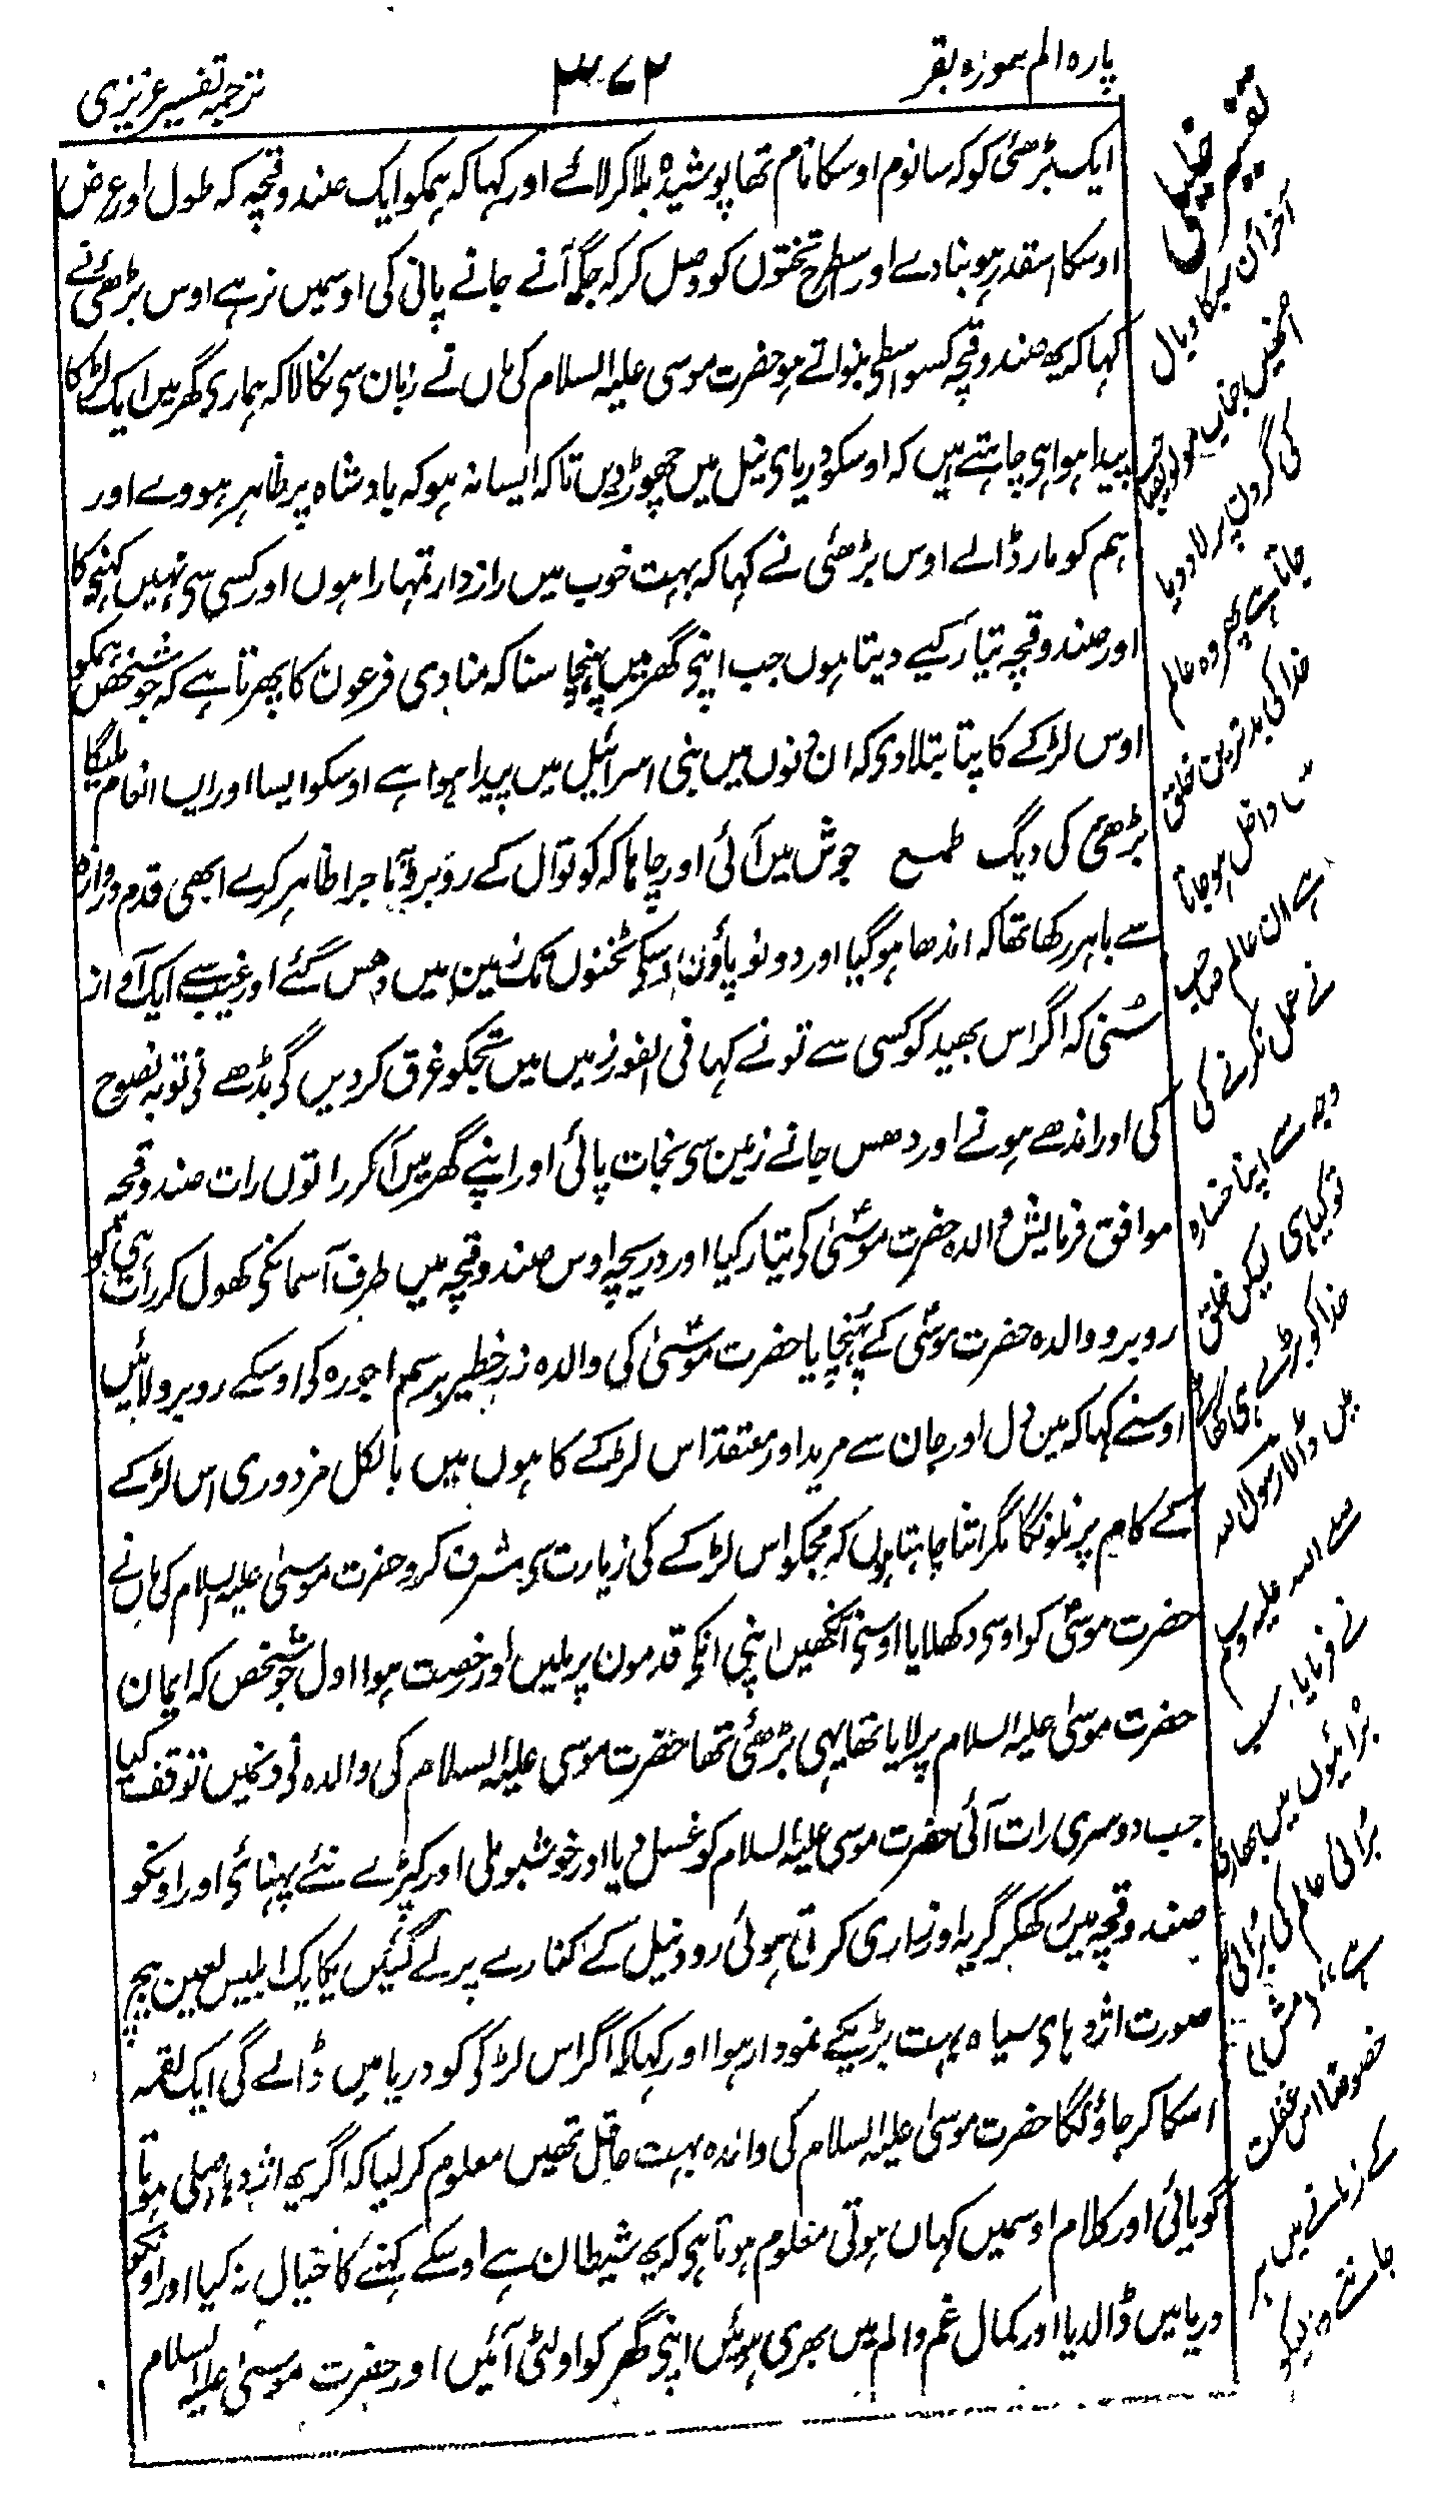 پارہ الم سورہ بقر
۳۷۲
ترجمہ تفسیر عزیزی
ایک بڑھئی کو کہ سانوم اوسکا نام تھا پوشیدہ بلا کر لائے اور کہا کہ ہمکو ایک صندوقچہ کہ طول اور عرض
اوسکا اسقدر ہو بنا دے اور اسطرح تختوں کو وصل کر کہ جگہ آنے جانے پانی کی اوسمیں نرہے اوس بڑھئی نے
کہا کہ یہ صندوقچہ کسواسطی بنواتے ہو حضرت موسی علیہ السلام کی ماں نے زبان سی نکالا کہ ہماری گھر میں ایک لڑکا
پیدا ہوا ہی چاہتے ہیں کہ اوسکو دریای نیل میں چھوڑ دیں تا کہ ایسا نہ ہو کہ بادشاہ پر ظاہر ہووے اور
ہم کو مار ڈالے اوس بڑھئی نے کہا کہ بہت خوب میں رازدار تمہارا ہوں اور کسی سی نہیں کہنے کا
اور صندوقچہ تیار کیے دیتا ہوں جب اپنی گھر میں پہنچا سنا کہ منادی فرعون کا پھرتا ہے کہ جو شخص ہمکو
اوس لڑکے کا پتا بتلادی کہ ان دنوں میں بنی اسرائیل میں پیدا ہوا ہے اوسکو ایسا اور ایسا انعام ملیگا
بڑھئی کی دیگ طمع جوش میں آئی اور چاہا کہ کوتوال کے روبرو یہ ماجرا ظاہر کرے ابھی قدم دروازہ
سے باہر رکھا تھا کہ اندھا ہوگیا اور دونو پاؤں اوسکی ٹخنوں تک زمین میں دھس گئے اور غیب سے ایک آواز
سنی کہ اگر اس بھید کو کسی سے تو نے کہا فی الفور زمیں میں تجکو غرق کردیں گی بڈھے نی توبہ نصوح
کی اور اندھے ہونے اور دھس جانے زمین سی نجات پائی اور اپنے گھر میں آکر راتوں رات صندوقچہ
موافق فرمایش والدہ حضرت موسیٰؑ کی تیار کیا اور دریچہ اوس صندوقچہ میں طرف آسمانکی کھول کر رات ہی کو
روبرو والدہ حضرت موسیٰؑ کے پہنچایا حضرت موسیٰؑ کی والدہ زر خطیر برسم اجورہ کی اوسکے روبرو لائیں
اوسنے کہا کہ میں دل اور جان سے مرید اور معتقد اس لڑکے کا ہوں میں بالکل مزدوری اس لڑکے
کے کام پر نلونگا مگر اتنا چاہتا ہوں کہ مجکو اس لڑکے کی زیارت سی مشرف کرو حضرت موسیٰ علیہ السلام کی ماں نے
حضرت موسیٰؑ کو اوسی دکھلایا اوسنی آنکھیں اپنی انکی قدمون پر ملیں اور رخصت ہوا اول جو شخص کہ ایمان
حضرت موسیٰ علیہ السلام پر لایا تھا یہی بڑھئی تھا حضرت موسی علیہ السلام کی والدہ نی دنمیں توقف کیا
جب دوسری رات آئی حضرت موسی علیہ السلام کو غسل دیا اور خوشبو ملی اور کپڑے نئے پہنائی اور اونکو
صندوقچہ میں رکھکر گریہ اور زاری کرتی ہوئی رود نیل کے کنارے پر لے گئیں یکایک ابلیس لعین بیچ
صورت اژدہای سیاہ بہت بڑیکے نمودار ہوا اور کہا کہ اگر اس لڑکی کو دریا میں ڈالے گی ایک لقمہ
اسکا کر جاؤنگا حضرت موسیٰ علیہ السلام کی والدہ بہت عاقل تھیں معلوم کرلیا کہ اگر یہ اژدہا اصلی ہوتا
گویائی اور کلام اوسمیں کہاں ہوتی معلوم ہوتا ہی کہ یہ شیطان ہے اوسکے کہنے کا خیال نہ کیا اور اونکو
دریا میں ڈالدیا اور کمال غم و الم میں بھری ہوئیں اپنی گھر کو اولٹی آئیں اور حضرت موسیٰ علیہ السلام
آخر ان سبکا وبال
کی گردن پر لادا دیا
جاتا ہے پھر وہ عالم
خدا کی بدترین خلق
میں داخل ہوجاتا
ہے ان عالم صاحب
نے عمل نکرنے کی
وجہ سے اپنا خسارہ
تو کیا ہی لیکن خلق
خدا کو بڑے ہی گھاٹے
میں ڈالا رسول اللہ
صلے اللہ علیہ وسلم
نے فرمایا سب
برائیوں میں بھاری
برائی عالم کی برائی
ہے
خصوصا اس غفلت
کے زمانے میں